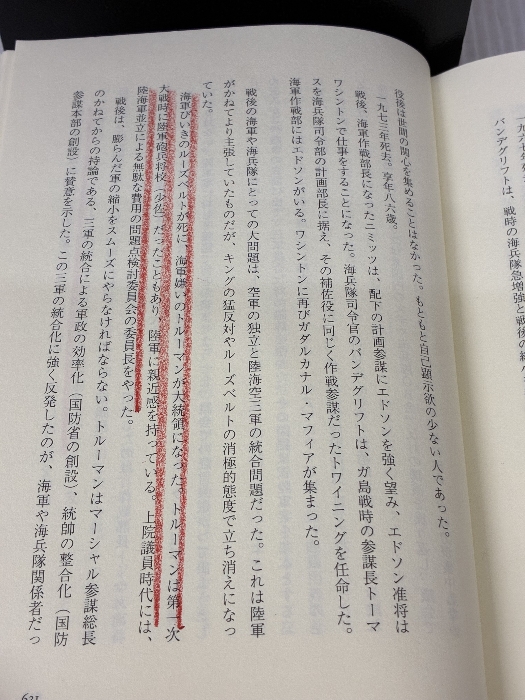 九六七
バンデグリフトは、戦時の海兵隊急増強と戦後の
役後は世間の関心を集めることはなかった。もともと自己顕示欲の少ない人であった。
一九七三年死去。享年八六歳。
戦後、海軍作戦部長になったニミッツは、配下の計画参謀にエドソンを強く望み、エドソン准将は
ワシントンで仕事をすることになった。海兵隊司令官のバンデグリフトは、ガ島戦時の参謀長トーマ
スを海兵隊司令部の計画部長に据え、その補佐役に同じく作戦参謀だったトワイニングを任命した。
海軍作戦部にはエドソンがいる。ワシントンに再びガダルカナル・マフィアが集まった。
戦後の海軍や海兵隊にとっての大問題は、空軍の独立と陸海空三軍の統合問題だった。これは陸軍
がかねてより主張していたものだが、キングの猛反対やルーズベルトの消極的態度で立ち消えになっ
ていた。
海軍びいきのルーズベルトが死に、海軍嫌いのトルーマンが大統領になった。トルーマンは第一次
大戦時に陸軍砲兵将校（少佐）だったこともあり、陸軍に親近感を持っている。上院議員時代には、
陸海軍並立による無駄な費用の問題点検討委員会の委員長をやった。
戦後は、膨らんだ軍の縮小をスムーズにやらなければならない。トルーマンはマーシャル参謀総長
のかねてからの持論である、三軍の統合による軍政の効率化（国防省の創設）、統帥の整合化（国防
参謀本部の創設）に賛意を示した。この三軍の統合化に強く反発したのが、海軍や海兵隊関係者だっ